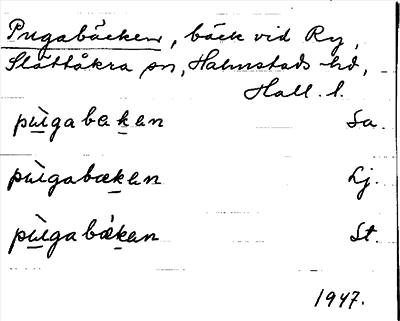 Pugabäcken, bäck vid Ry,
Slättåkra sn, Halmstads hd,
Hall. l.
pùigabekan Sa.
pùigabækan Lj.
pùigabǽkan St.
1947.